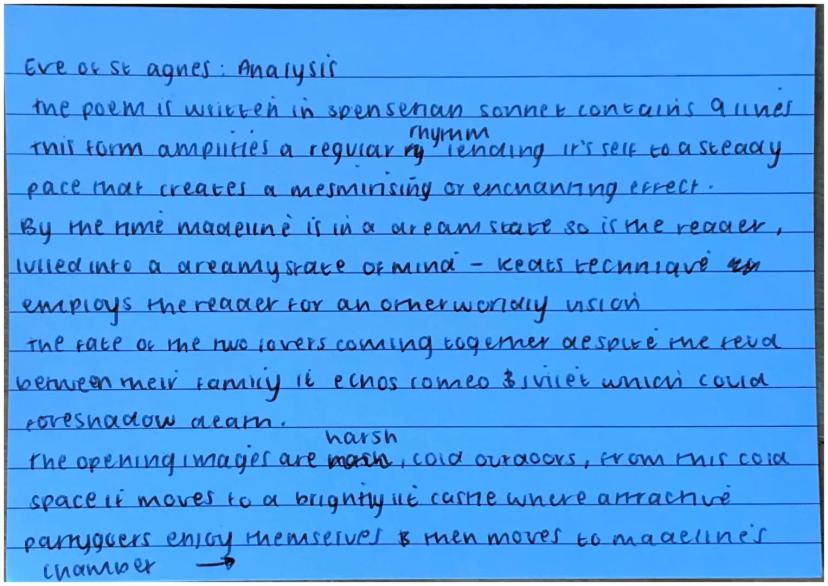 Eve of St agnes: Analysis
The poem is written in spenserian sonnet contains 9 lines
rhymm
This form amplifies a regular ry lending it's self to a steady
pace that creates a mesmirising or enchanting effect.
By the time madeline is in a dream state so is the reader,
lulled into a dreamy state of mind - keats technique
employs the reader for an other worldly vision
The fate of the two lovers coming together despite the feud
between their family it echos romeo & juliet which could
foreshadow death.
harsh
The opening images are harsh, cold outdoors, from this cold
space it moves to a brightly lit castle where attractive
partygoers enjoy themselves & then moves to madeline's
chamber →